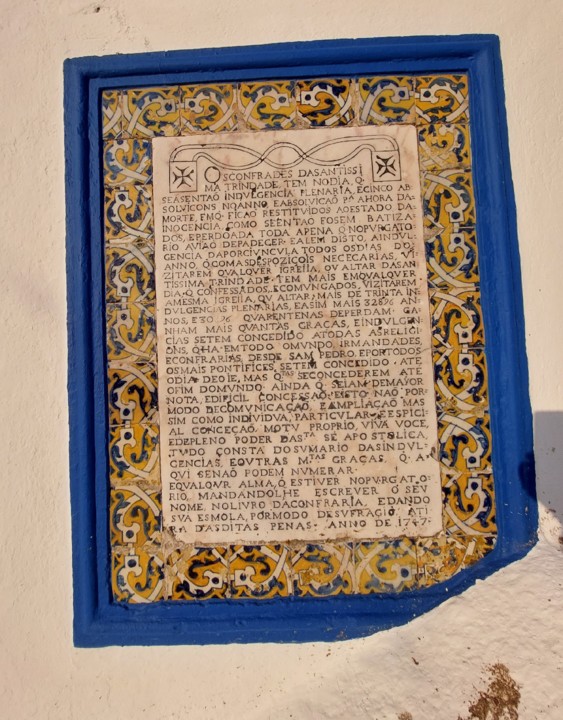 OSCONFRADES DASANTISSI
MA TRINDADE, TEM NODIA, Q.
SEASENTAÕ INDVLGENCIA PLENARIA, ECINCO AB-
SOLVICONS NOANNO, EABSOLVICAÕ Pᴬ AHORA DA-
MORTE, EMQ. FICAÕ RESTITVIDOS AOESTADO DA-
INOCENCIA, COMO SEENTAÕ FOSEM BATIZA-
DOS, EPERDOADA TODA APENA Q NOPVRGATO-
RIO AVIAÕ DEPADECER. EALEM DISTO, AINDVL-
GENCIA DAPORCIVNCVLA, TODOS OSDIAS DO-
ANNO, Q̃ COMASDESPOZIÇOIS NECECARIAS, VI-
ZITAREM QVALQVER IGREIIA, QV ALTAR DASAN-
TISSIMA TRINDADE. TEM MAIS EMQVALQVER
DIA. Q CONFESSADOS, ECOMVNGADOS, VIZITAREM
AMESMA IGREIIA, OV ALTAR; MAIS DE TRINTA IN-
DVLGENCIAS PLENARIAS, EASIM MAIS AN-
NOS, E QVARENTENAS DEPERDAM. GA-
NHAM MAIS QVANTAS GRACAS, EINDVLGEN-
CIAS SETEM CONCEDIDO ATODAS ASRELIGI-
ONS, Q.HA EMTODO OMVNDO, IRMANDADES,
ECONFRARIAS, DESDE SAM PEDRO, EPORTODOS
OSMAIS PONTIFICES, SETEM CONCEDIDO, ATE
ODIA DEOIE, MAS Q SECONCEDEREM ATE
OFIM DOMVNDO AINDA Q. SEIAM DEMAYOR
NOTA, EDIFICIL CONCESSAÕ; EISTO NAÕ POR-
MODO DECOMVNICAÇAÕ, EAMPLIAÇAÕ MAS
SIM COMO INDIVIDVA, PARTICVLAR, EESPICI-
AL CONCEÇAÕ, MOTV PROPRIO, VIVA VOCE,
EDEZPLENO PODER DASᵀᴬ SÉ APOSTOLICA,
TVDO CONSTA DOSVMARIO DASINDVL-
GENCIAS, EOVTRAS Mᵀᴬˢ GRAÇAS, Q. A-
QVI SENAÕ PODEM NVMERAR.
EQVALQVR ALMA, Q ESTIVER NOPVRGATO-
RIO, MANDANDOLHE ESCREVER O SEV
NOME, NOLIVRO DACONFRARIA, EDANDO
SVA ESMOLA, PORMODO DESVFRAGIO ATI-
RA DASDITAS PENAS. ANNO DE 1747.